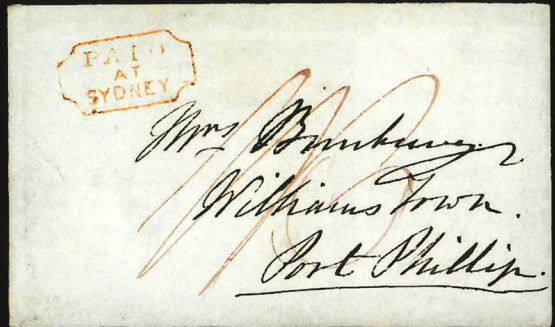 PAID
AT
SYDNEY
Mrs
Williams Town.
Port Phillip.